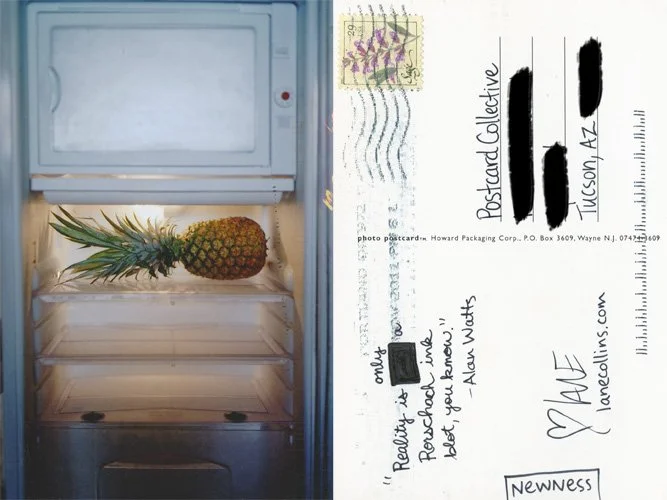 29
Sage
Postcard Collective
Tucson, AZ
photo postcard™ Howard Packaging Corp., P.O. Box 3609, Wayne N.J. 07474-3609
"Reality is only a
Rorschach ink
blot, you know."
-Alan Watts
♡ LANE
lanecollins.com
NEWNESS